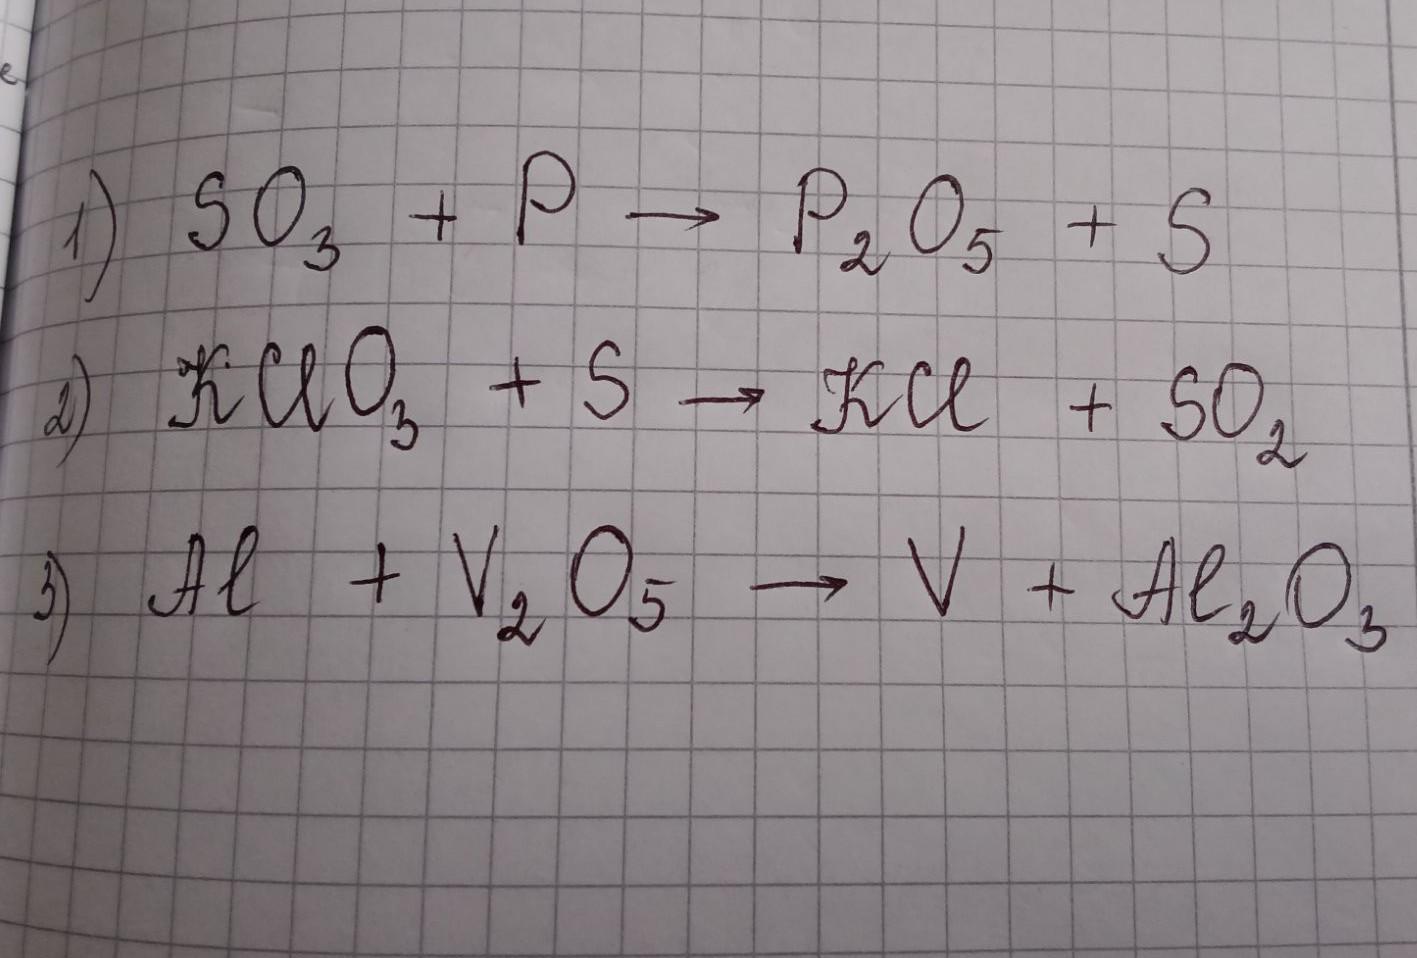 1) SO₃ + P → P₂O₅ + S
2) KClO₃ + S → KCl + SO₂
3) Al + V₂O₅ → V + Al₂O₃